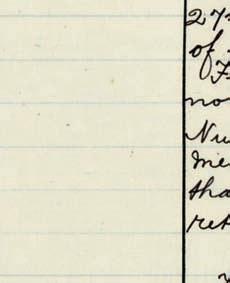 27
of
no
Nu
me
tha
ret